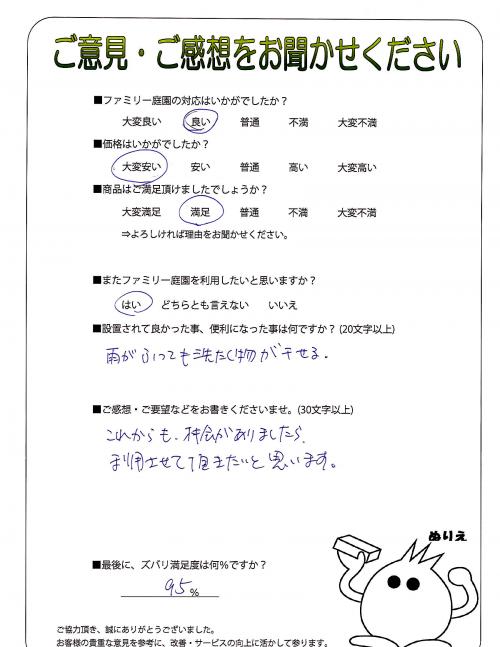 ご意見・ご感想をお聞かせください
■ファミリー庭園の対応はいかがでしたか？
大変良い 良い 普通 不満 大変不満
■価格はいかがでしたか？
大変安い 安い 普通 高い 大変高い
■商品はご満足頂けましたでしょうか？
大変満足 満足 普通 不満 大変不満
⇒よろしければ理由をお聞かせください。
■またファミリー庭園を利用したいと思いますか？
はい どちらとも言えない いいえ
■設置されて良かった事、便利になった事は何ですか？(20文字以上)
雨がふっても洗たく物が干せる。
■ご感想・ご要望などをお書きくださいませ。(30文字以上)
これからも、機会がありましたら、
利用させて頂きたいと思います。
ぬりえ
■最後に、ズバリ満足度は何％ですか？
95％
ご協力頂き、誠にありがとうございました。
お客様の貴重な意見を参考に、改善・サービスの向上に活かして参ります。